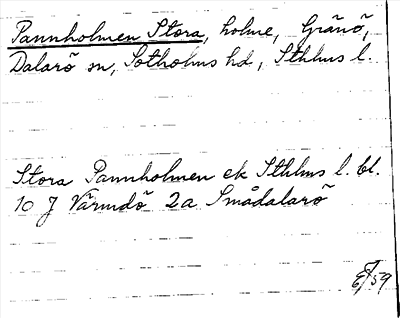 Pannholmen Stora, holme, Gränö,
Dalarö sn, Sotholms hd, Sthlms l.
Stora Pannholmen ek Sthlms l. bl.
10 J Värmdö 2a Smådalarö
59